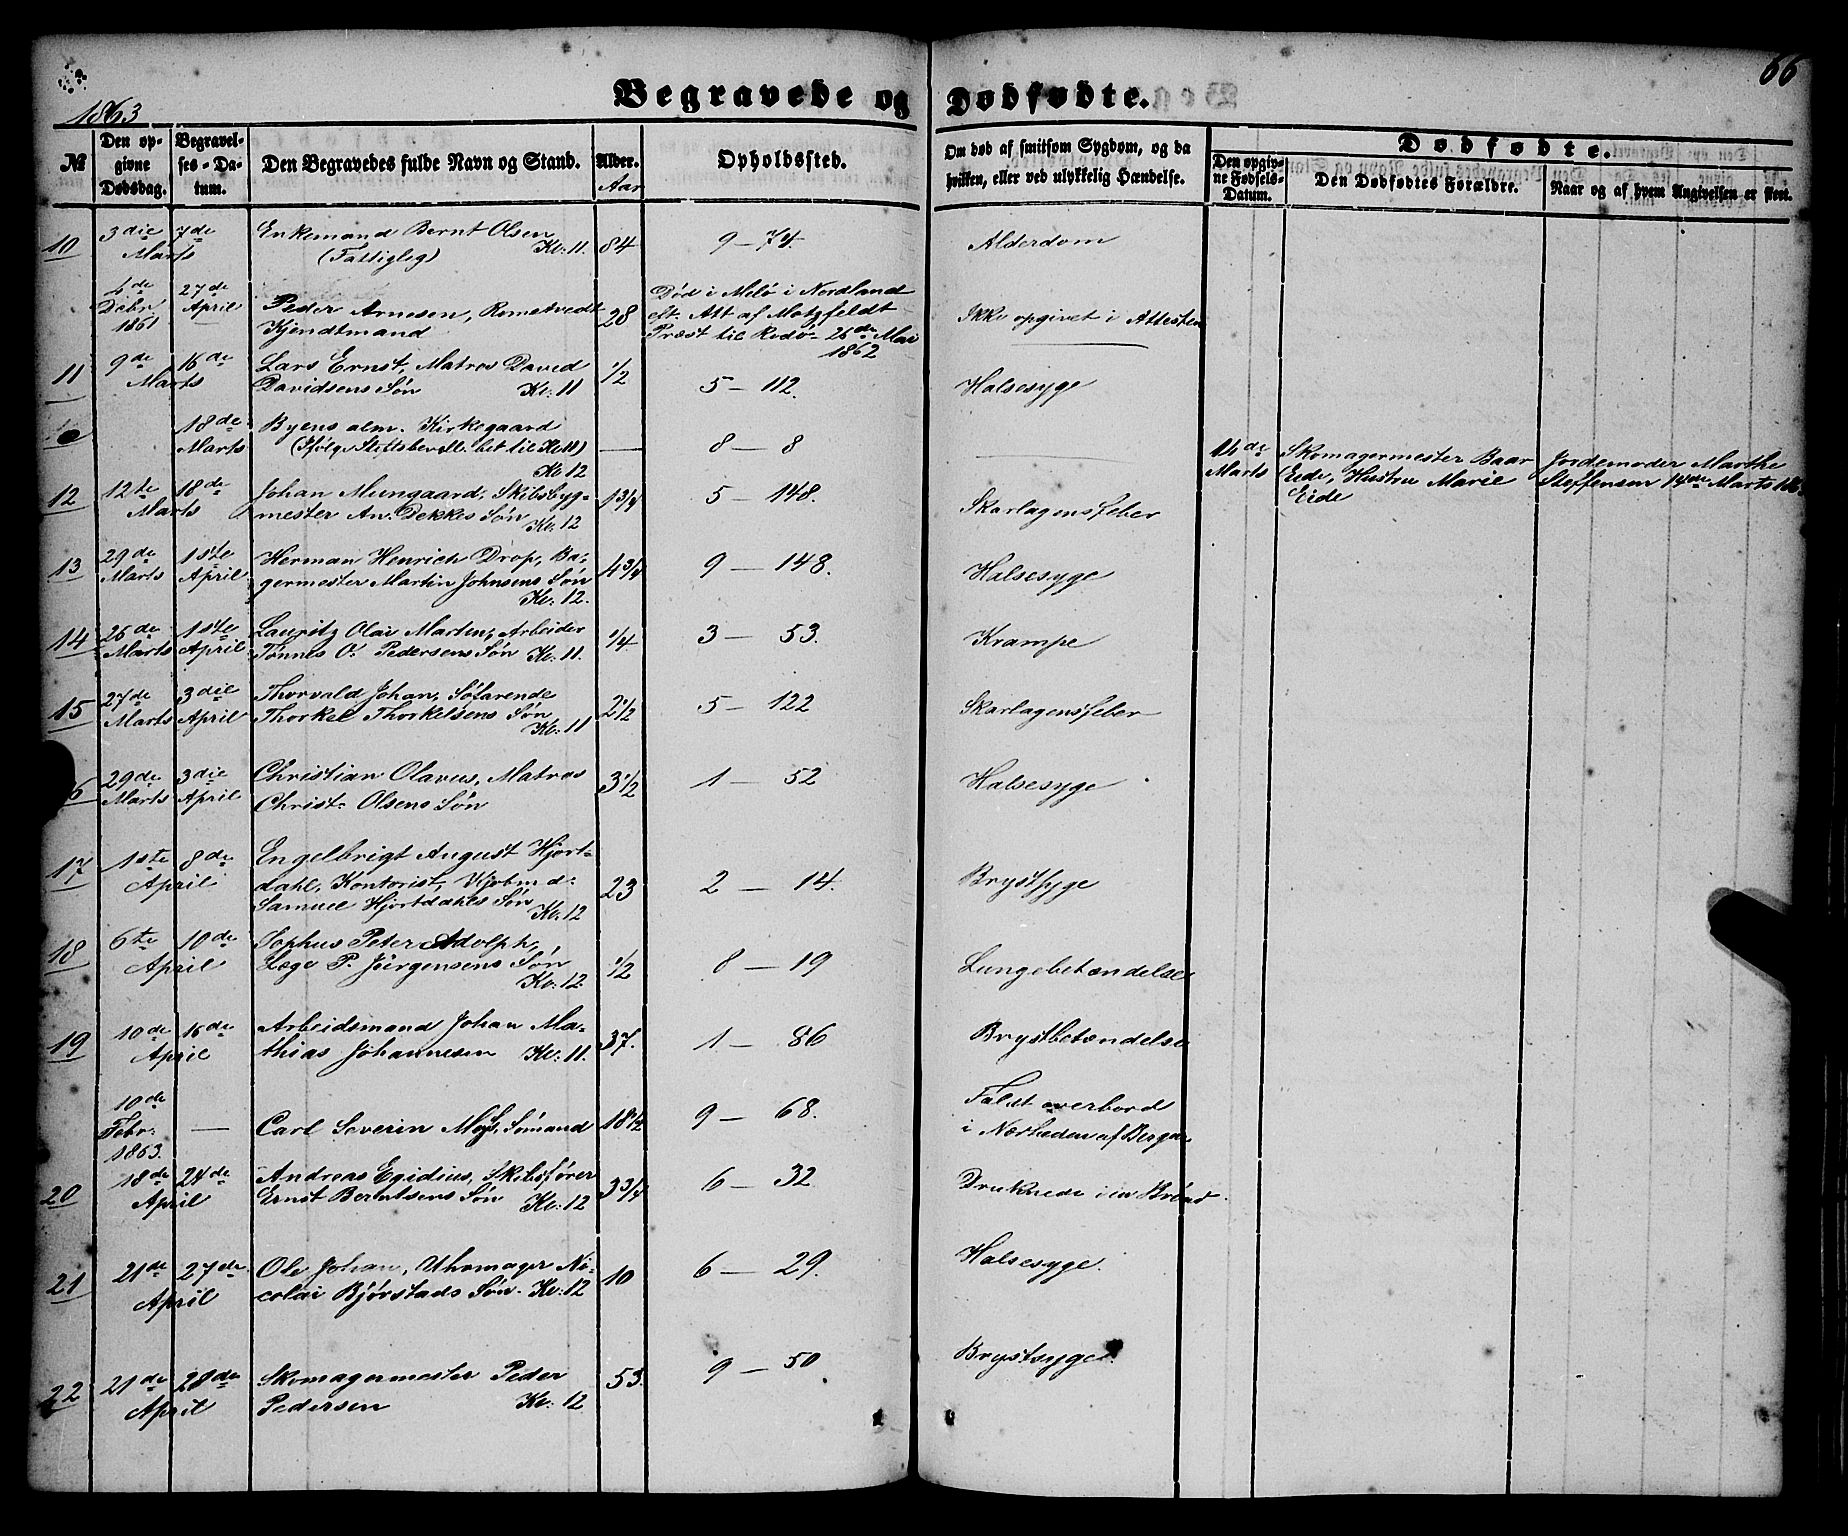 66
1863
Begravede og Dødfødte.
№
Den opgivne Dødsdag.
Begravelses-Datum.
Den Begravedes fulde Navn og Stand.
Alder.
Aar
Opholdssted.
Om død af smitsom Sygdom, og da hvilken, eller ved ulykkelig Hændelse.
Dødfødte.
Den opgivne Fødsels-Datum.
Den Dødfødtes Forældre.
Naar og af hvem Angivelsen er skeet.
10 3die Marts 7de Enkemand Bernt Olsen 84 9 – 74. Alderdom
(Fattiglig) Kl: 11.
6de Debr 1861 27de April Peder Arnesen, Romstvedt 28 Død i Melö i Nordland Ikke opgivet i Attesten
Kjendtmand eft. Att af Motzfeldt
Præst til Rodö 26de Mai
1862
11 9de Marts 16de Lars Ernst, Matros David 1/2 5 – 112. Halsesyge
Davidsens Søn Kl: 11
18de Marts Byens alm. Kirkegaard — 8 – 8 14de Marts Skomagermester Baar Jordemoder Marthe
Kl 12 Eide, Hustru Marie Steffensen 14de Marts
Eide
12 12te Marts 18de Johan Mungaard, Skibsbyg- 1 3/4 5 – 148. Skarlagensfeber
mester An. Dekkes Søn Kl: 12
13 29de Marts 1ste April Herman Henrich Drop, Ba- 4 3/4 9 – 148. Halsesyge
germester Martin Johnsens Søn
Kl: 12.
14 26de Marts 1ste April Lauritz Olai Martin, Arbeider 1/4 3 – 53. Krampe
Tønnes O. Pedersens Søn Kl: 11.
15 27de Marts 3die April Thorvald Johan, Søfarende 2 1/2 5 – 122 Skarlagensfeber
Thorkel Thorkelsens Søn
Kl: 11
6 29de Marts 3die April Christian Olavus, Matros 3 1/2 1 – 52 Halsesyge
Christ: Olsens Søn
17 1ste April 8de Engelbrigt August Hjort- 23 2 – 14. Brystsyge
dahl, Kontorist, Kjøbmd:
Samuel Hjortdahls Søn Kl: 12
18 6te April 10de Sophus Peter Adolph, 1/2 8 – 19 Lungebetændelse
Læge P. Jürgensens Søn
Kl: 12.
19 10de April 16de Arbeidsmand Johan Ma- 37. 1 – 86 Brystbetændelse
thias Johannesen Kl: 11.
10de Febr: 1863. — Carl Severin Moss, Sømand 18 1/2 9 – 68. Faldt overbord
i Nærheden af Bergen
20 18de April 24de Andreas Egidius, Skibsfører 3 3/4 6 – 32 Druknede i en Brønd.
Ernst Berntsens Søn Kl: 12
21 21de April 27de Ole Johan, Uhrmager Ni- 10 6 – 29. Halsesyge.
colai Bjørstads Søn. Kl: 12
22 21de April 28de Skomagermester Peder 53. 9 – 50 Brystsyge.
Pedersen Kl: 12